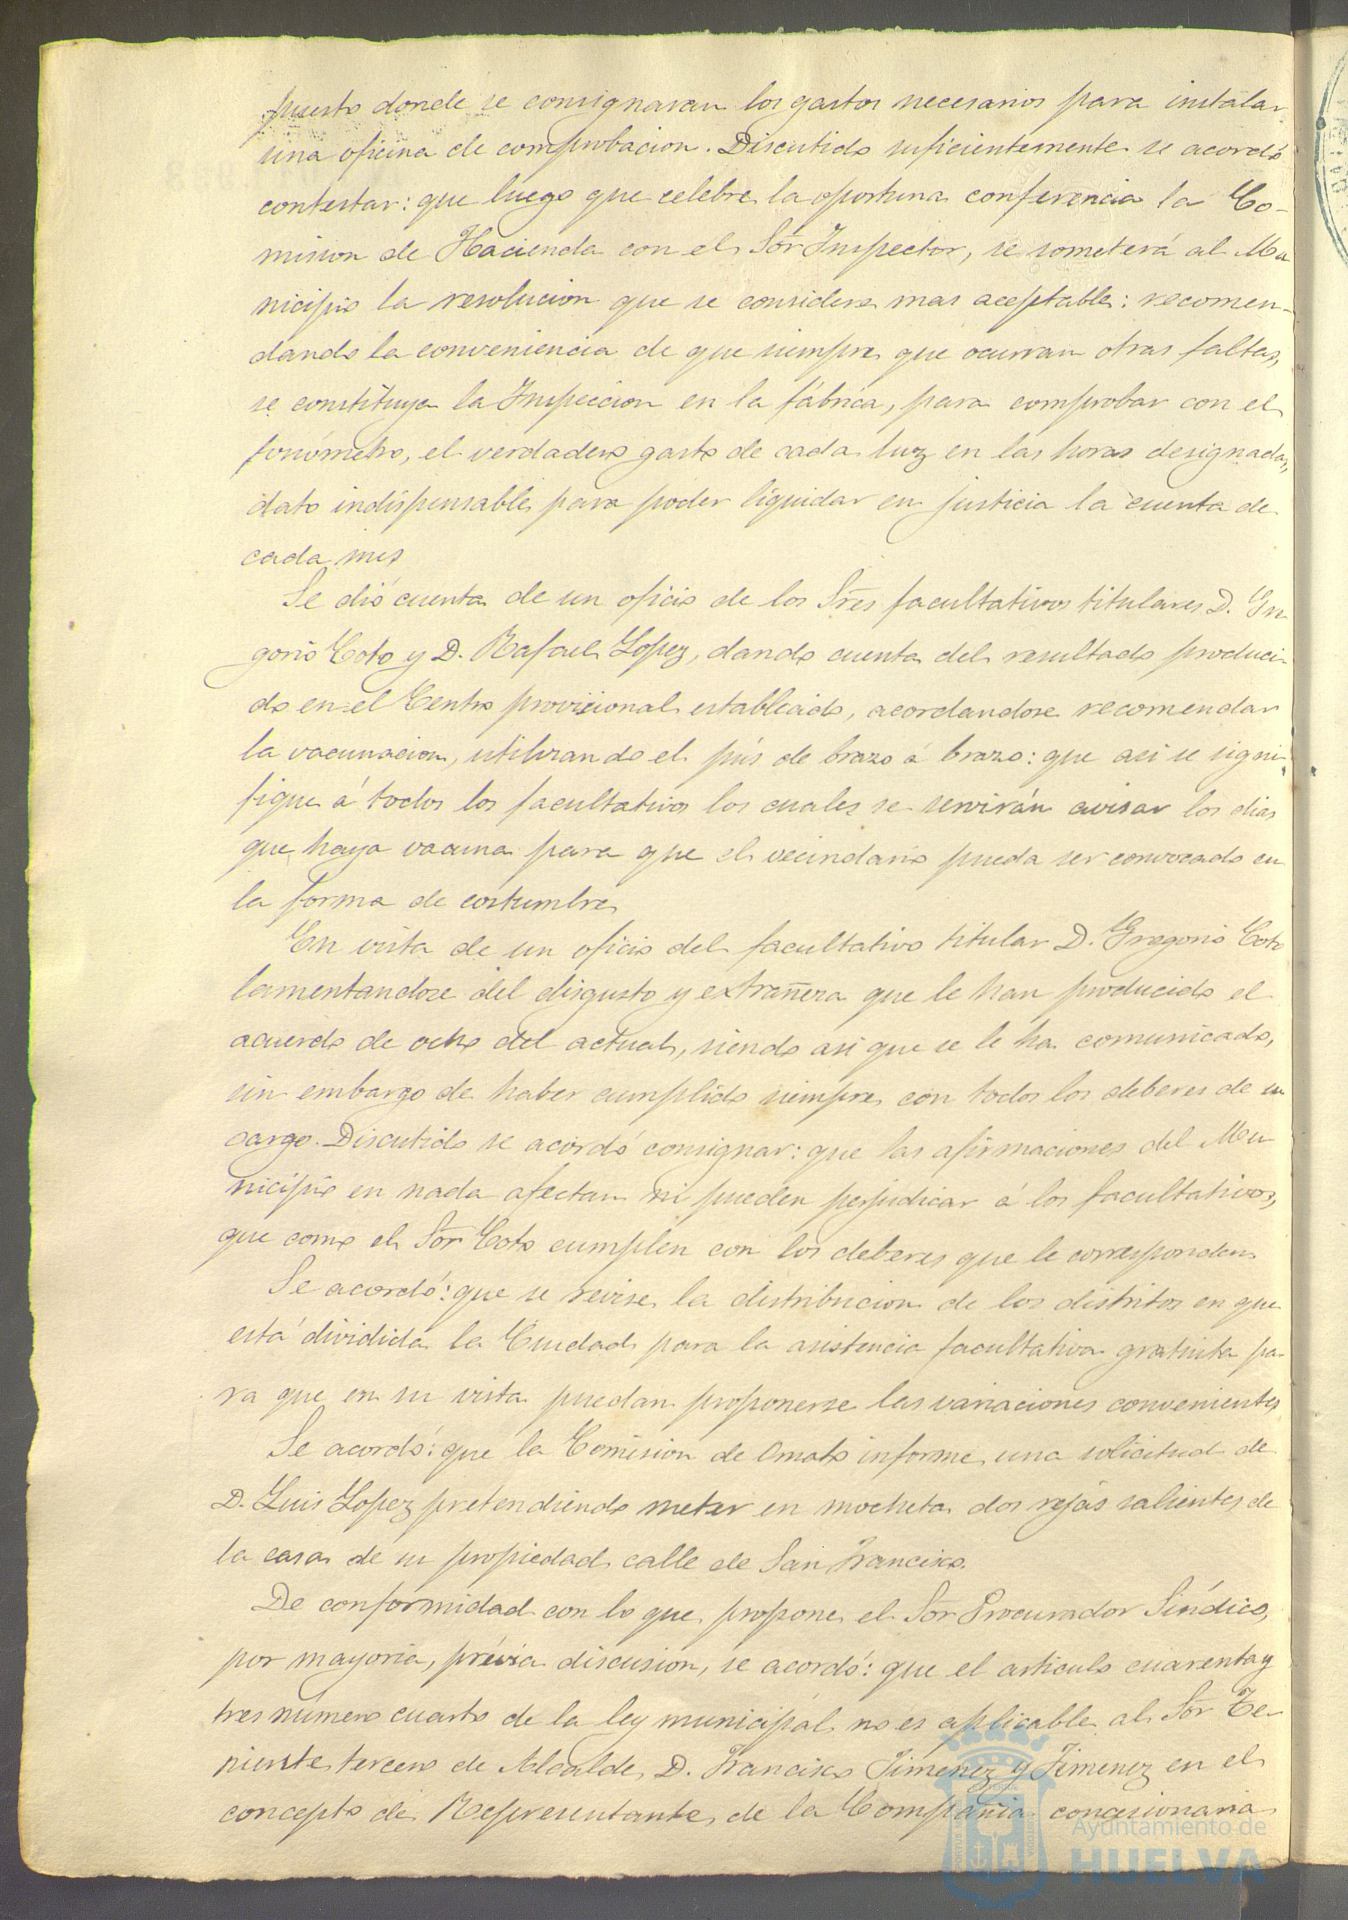 puesto donde se consignaran los gastos necesarios para instalar
una oficina de comprobacion. Discutido suficientemente se acordó
contestar: que luego que celebre la oportuna conferencia la Co-
mision de Hacienda con el Sor Inspector, se someterá al Mu
nicipio la resolucion que se considere mas aceptable: recomen-
dando la conveniencia de que siempre que ocurran otras faltas,
se constituya la Inspeccion en la fábrica, para comprobar con el
el verdadero gasto de cada luz en las horas designadas,
dato indispensable para poder liquidar en justicia la cuenta de
cada mes
Se dió cuenta de un oficio de los Sres facultativos titulares D. Gre
gorio Coto y D. Rafael Lopez, dando cuenta del resultado produci-
do en el Centro provisional establecido, acordandose recomendar
la vacunacion, utilizando el pús de brazo á brazo: que asi se signi-
fique á todos los facultativos los cuales se servirán avisar los dias
que haya vacuna para que el vecindario pueda ser convocado en
la forma de costumbre
En vista de un oficio del facultativo titular D. Gregorio Coto
lamentandose del disgusto y extrañeza que le han producido el
acuerdo de ocho del actual, siendo asi que se le ha comunicado,
sin embargo de haber cumplido siempre con todos los deberes de su
cargo. Discutido se acordó consignar: que las afirmaciones del Mu
nicipio en nada afectan ni pueden perjudicar á los facultativos,
que como el Sor Coto cumplen con los deberes que le corresponden
Se acordó: que se revise la distribucion de los distritos en que
está dividida la Ciudad para la asistencia facultativa gratuita pa-
ra que en su vista puedan proponerse las variaciones convenientes
Se acordó: que la Comision de Ornato informe una solicitud de
D. Luis Lopez pretendiendo meter en mocheta dos rejas salientes de
la casa de su propiedad calle de San Francisco.
De conformidad con lo que propone el Sor Procurador Síndico,
por mayoria, prévia discusion, se acordó: que el articulo cuarenta y
tres número cuarto de la ley municipal no es aplicable al Sor Te-
niente tercero de Alcalde, D. Francisco Jimenez y Jimenez en el
concepto de Representante de la Compañia concesionaria
Ayuntamiento de
HUELVA